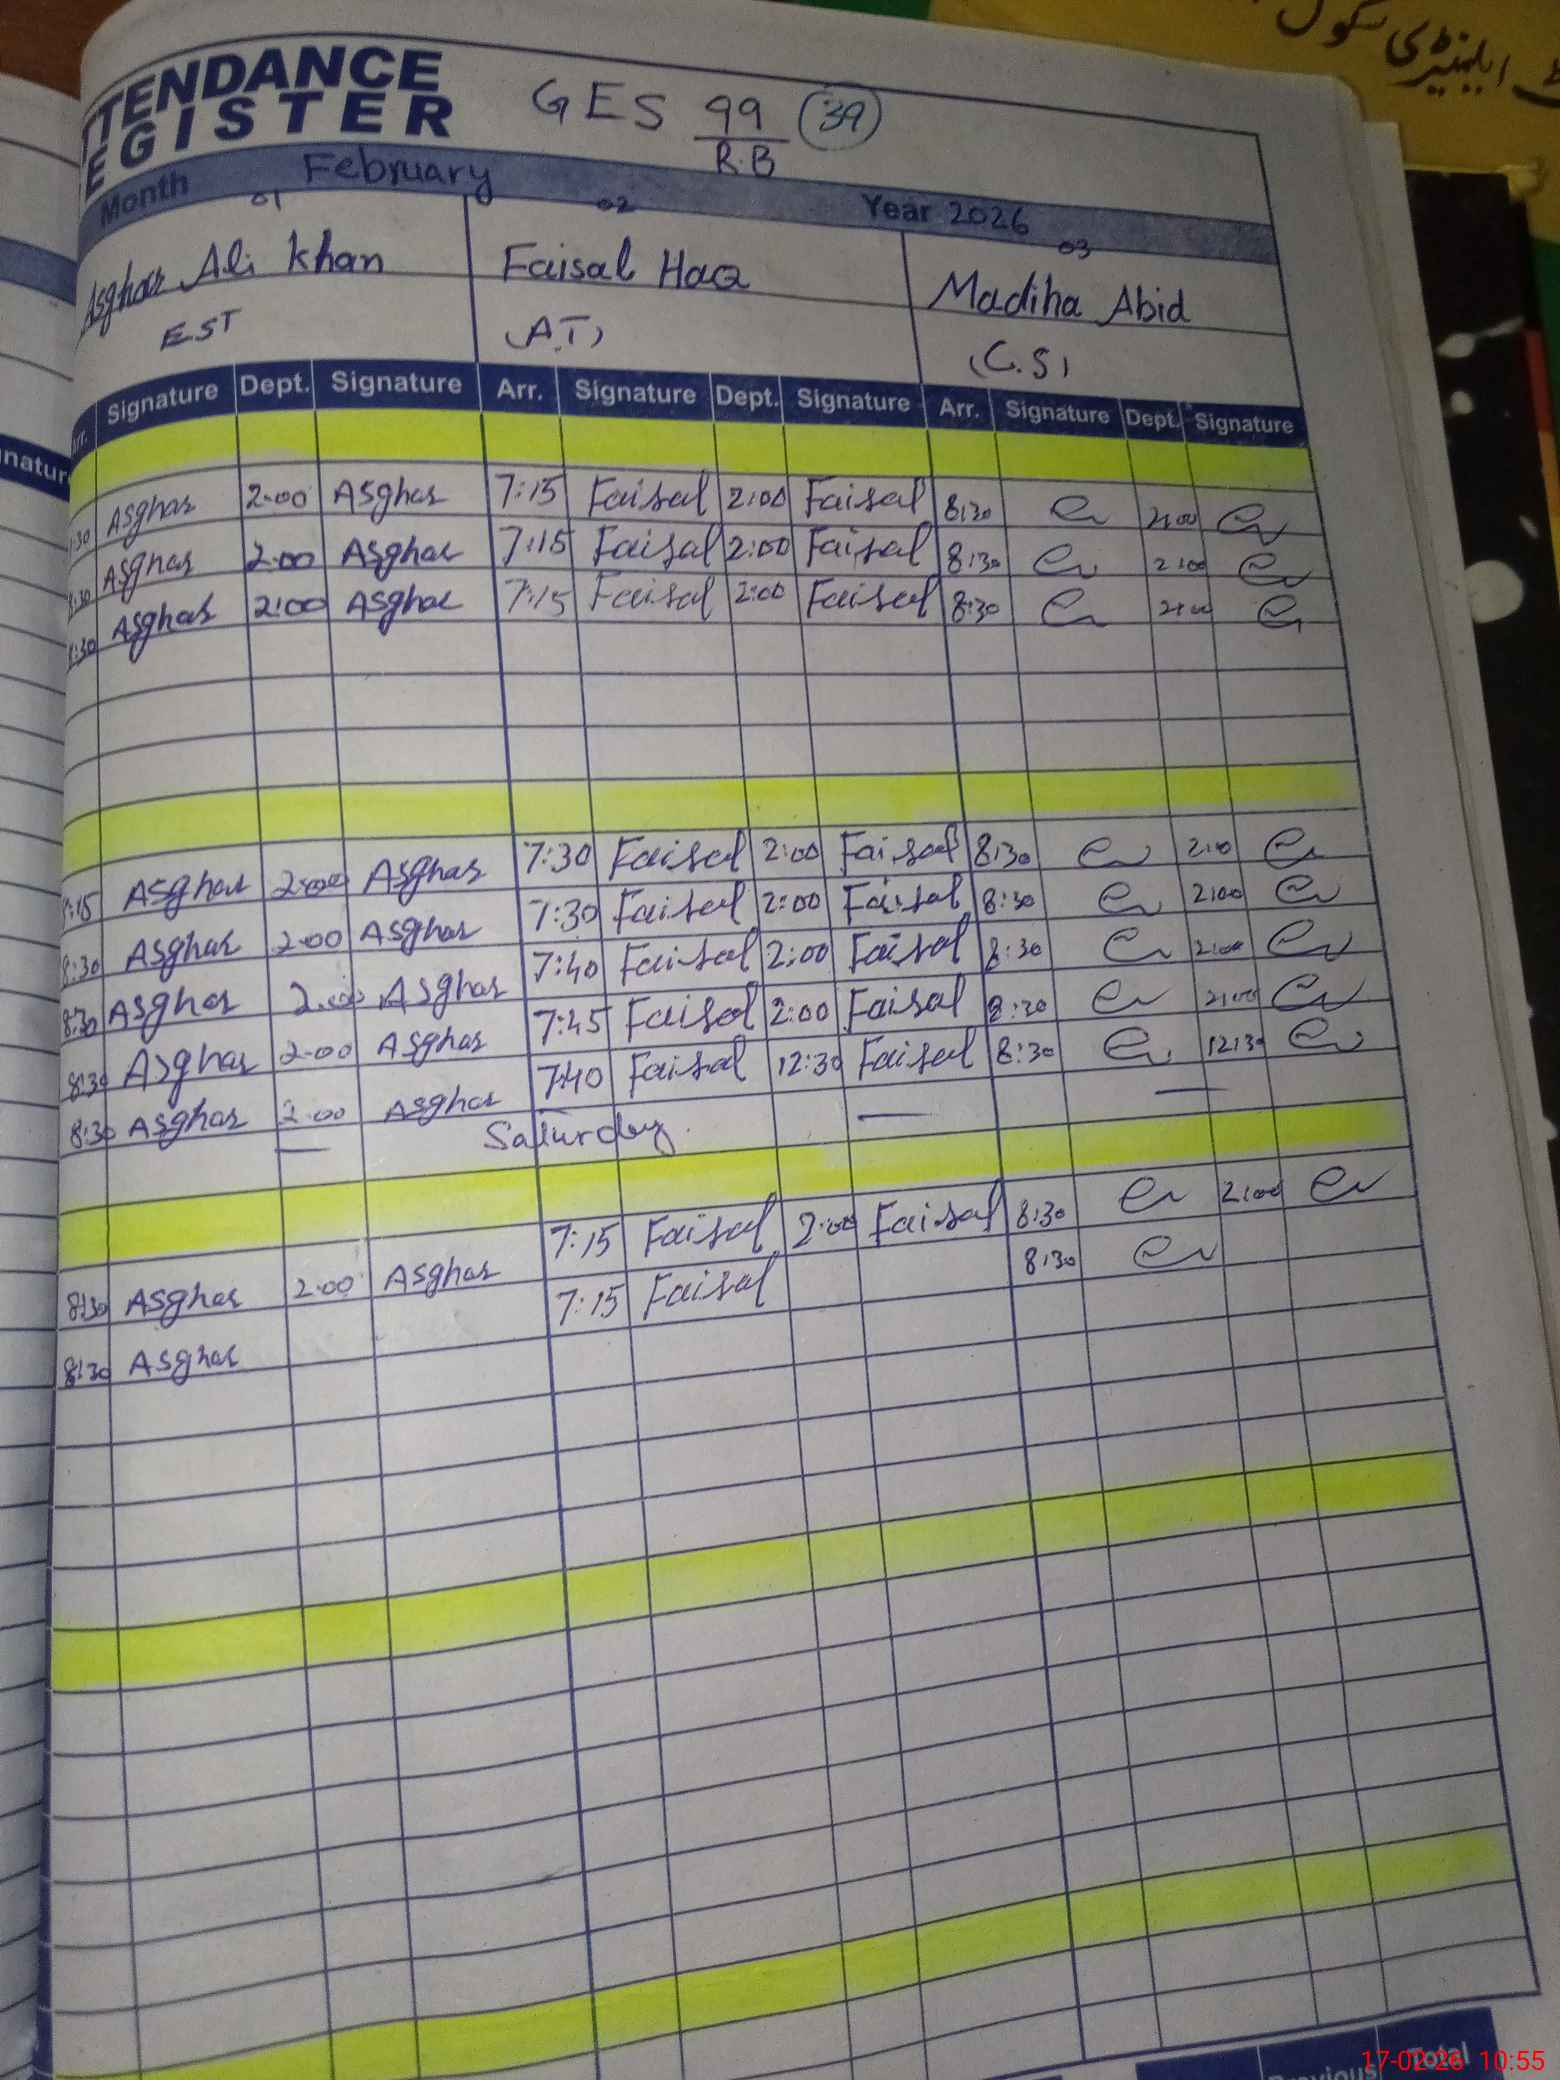 ٹ ایلیمنٹری سکول
TTENDANCE
EGISTER
GES 99/R.B (39)
Month February Year 2026
01 02 03
Asghar Ali Khan Faisal Haq Madiha Abid
EST (A.T) (C.S)
rr. Signature Dept. Signature Arr. Signature Dept. Signature Arr. Signature Dept. Signature
:30 Asghar 2:00 Asghar 7:15 Faisal 2:00 Faisal 8:30 2:00
8:30 Asghar 2:00 Asghar 7:15 Faisal 2:00 Faisal 8:30 2:00
8:30 Asghar 2:00 Asghar 7:15 Faisal 2:00 Faisal 8:30 2:00
8:15 Asghar 2:00 Asghar 7:30 Faisal 2:00 Faisal 8:30 2:00
8:30 Asghar 2:00 Asghar 7:30 Faisal 2:00 Faisal 8:30 2:00
8:30 Asghar 2:00 Asghar 7:40 Faisal 2:00 Faisal 8:30 2:00
8:30 Asghar 2:00 Asghar 7:45 Faisal 2:00 Faisal 8:30 2:00
8:30 Asghar 2:00 Asghar 7:40 Faisal 12:30 Faisal 8:30 12:30
— Saturday. — —
8:30 Asghar 2:00 Asghar 7:15 Faisal 2:00 Faisal 8:30 2:00
8:30 Asghar 7:15 Faisal 8:30
natur
Previous Total
17-02-26 10:55